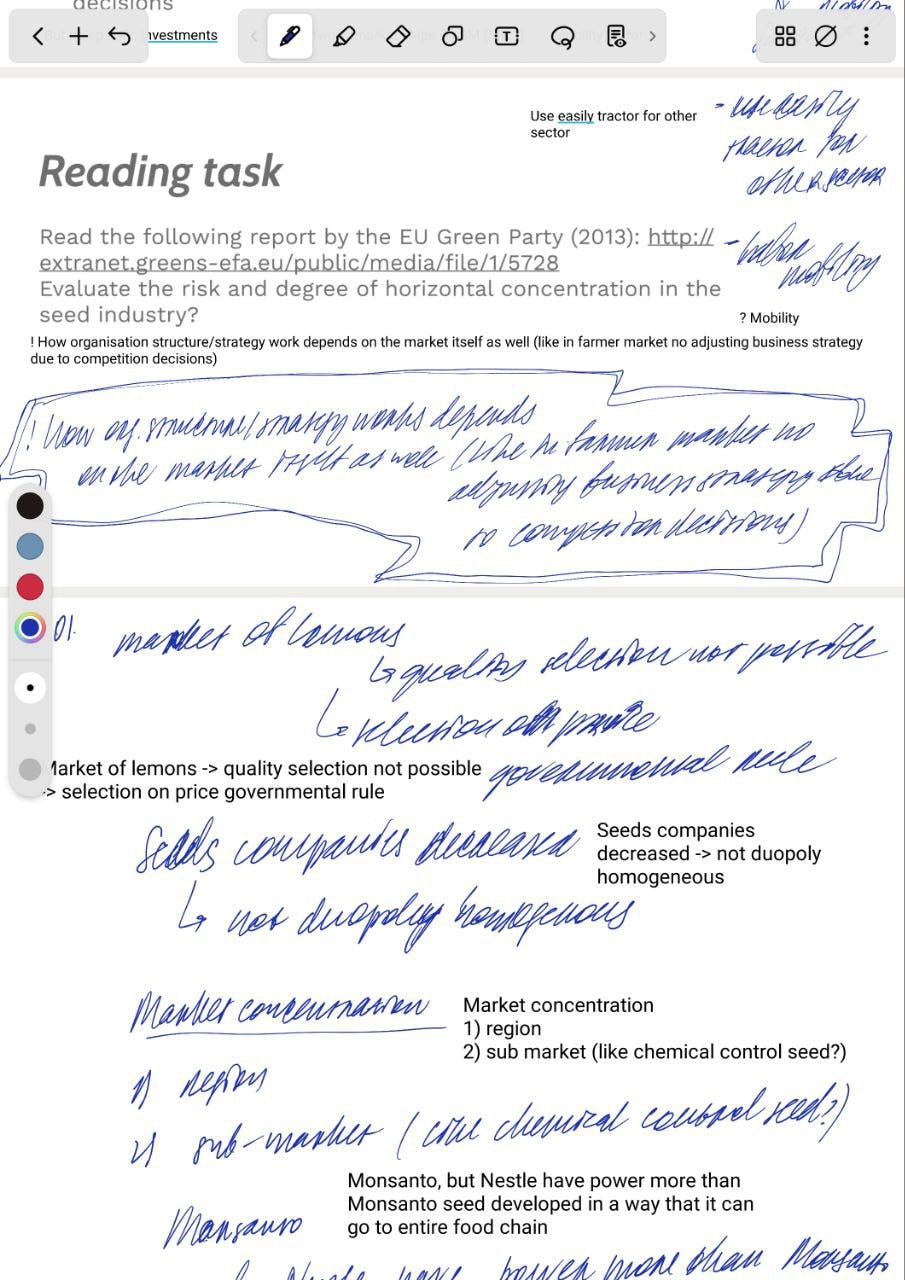 decisions
nvestments
Use easily tractor for other
sector
- use easily
tractor for
other sector
Reading task
Read the following report by the EU Green Party (2013): http://
extranet.greens-efa.eu/public/media/file/1/5728
Evaluate the risk and degree of horizontal concentration in the
seed industry?
- mobility
? Mobility
! How organisation structure/strategy work depends on the market itself as well (like in farmer market no adjusting business strategy
due to competition decisions)
! How org. structure/strategy works depends
on the market itself as well (like in farmer market no
adjusting business strategy due
to competition decisions)
01.
market of lemons
↳ quality selection not possible
↳ selection on price
governmental rule
Market of lemons -> quality selection not possible
-> selection on price governmental rule
Seeds companies decreased
Seeds companies
decreased -> not duopoly
homogeneous
↳ not duopoly homogenous
Market concentration
Market concentration
1) region
2) sub market (like chemical control seed?)
1) region
2) sub-market (like chemical control seed?)
Monsanto, but Nestle have power more than
Monsanto seed developed in a way that it can
go to entire food chain
Monsanto
↳ Nestle have power more than Monsanto